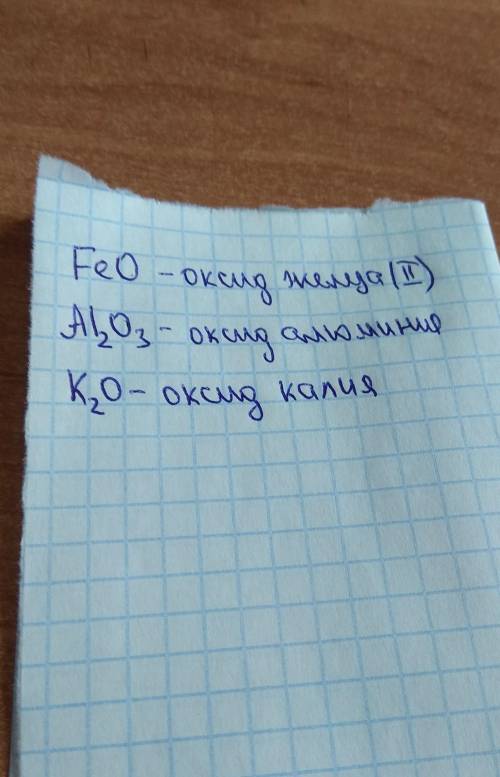 FeO - оксид желза (II)
Al₂O₃ - оксид алюминия
K₂O - оксид калия